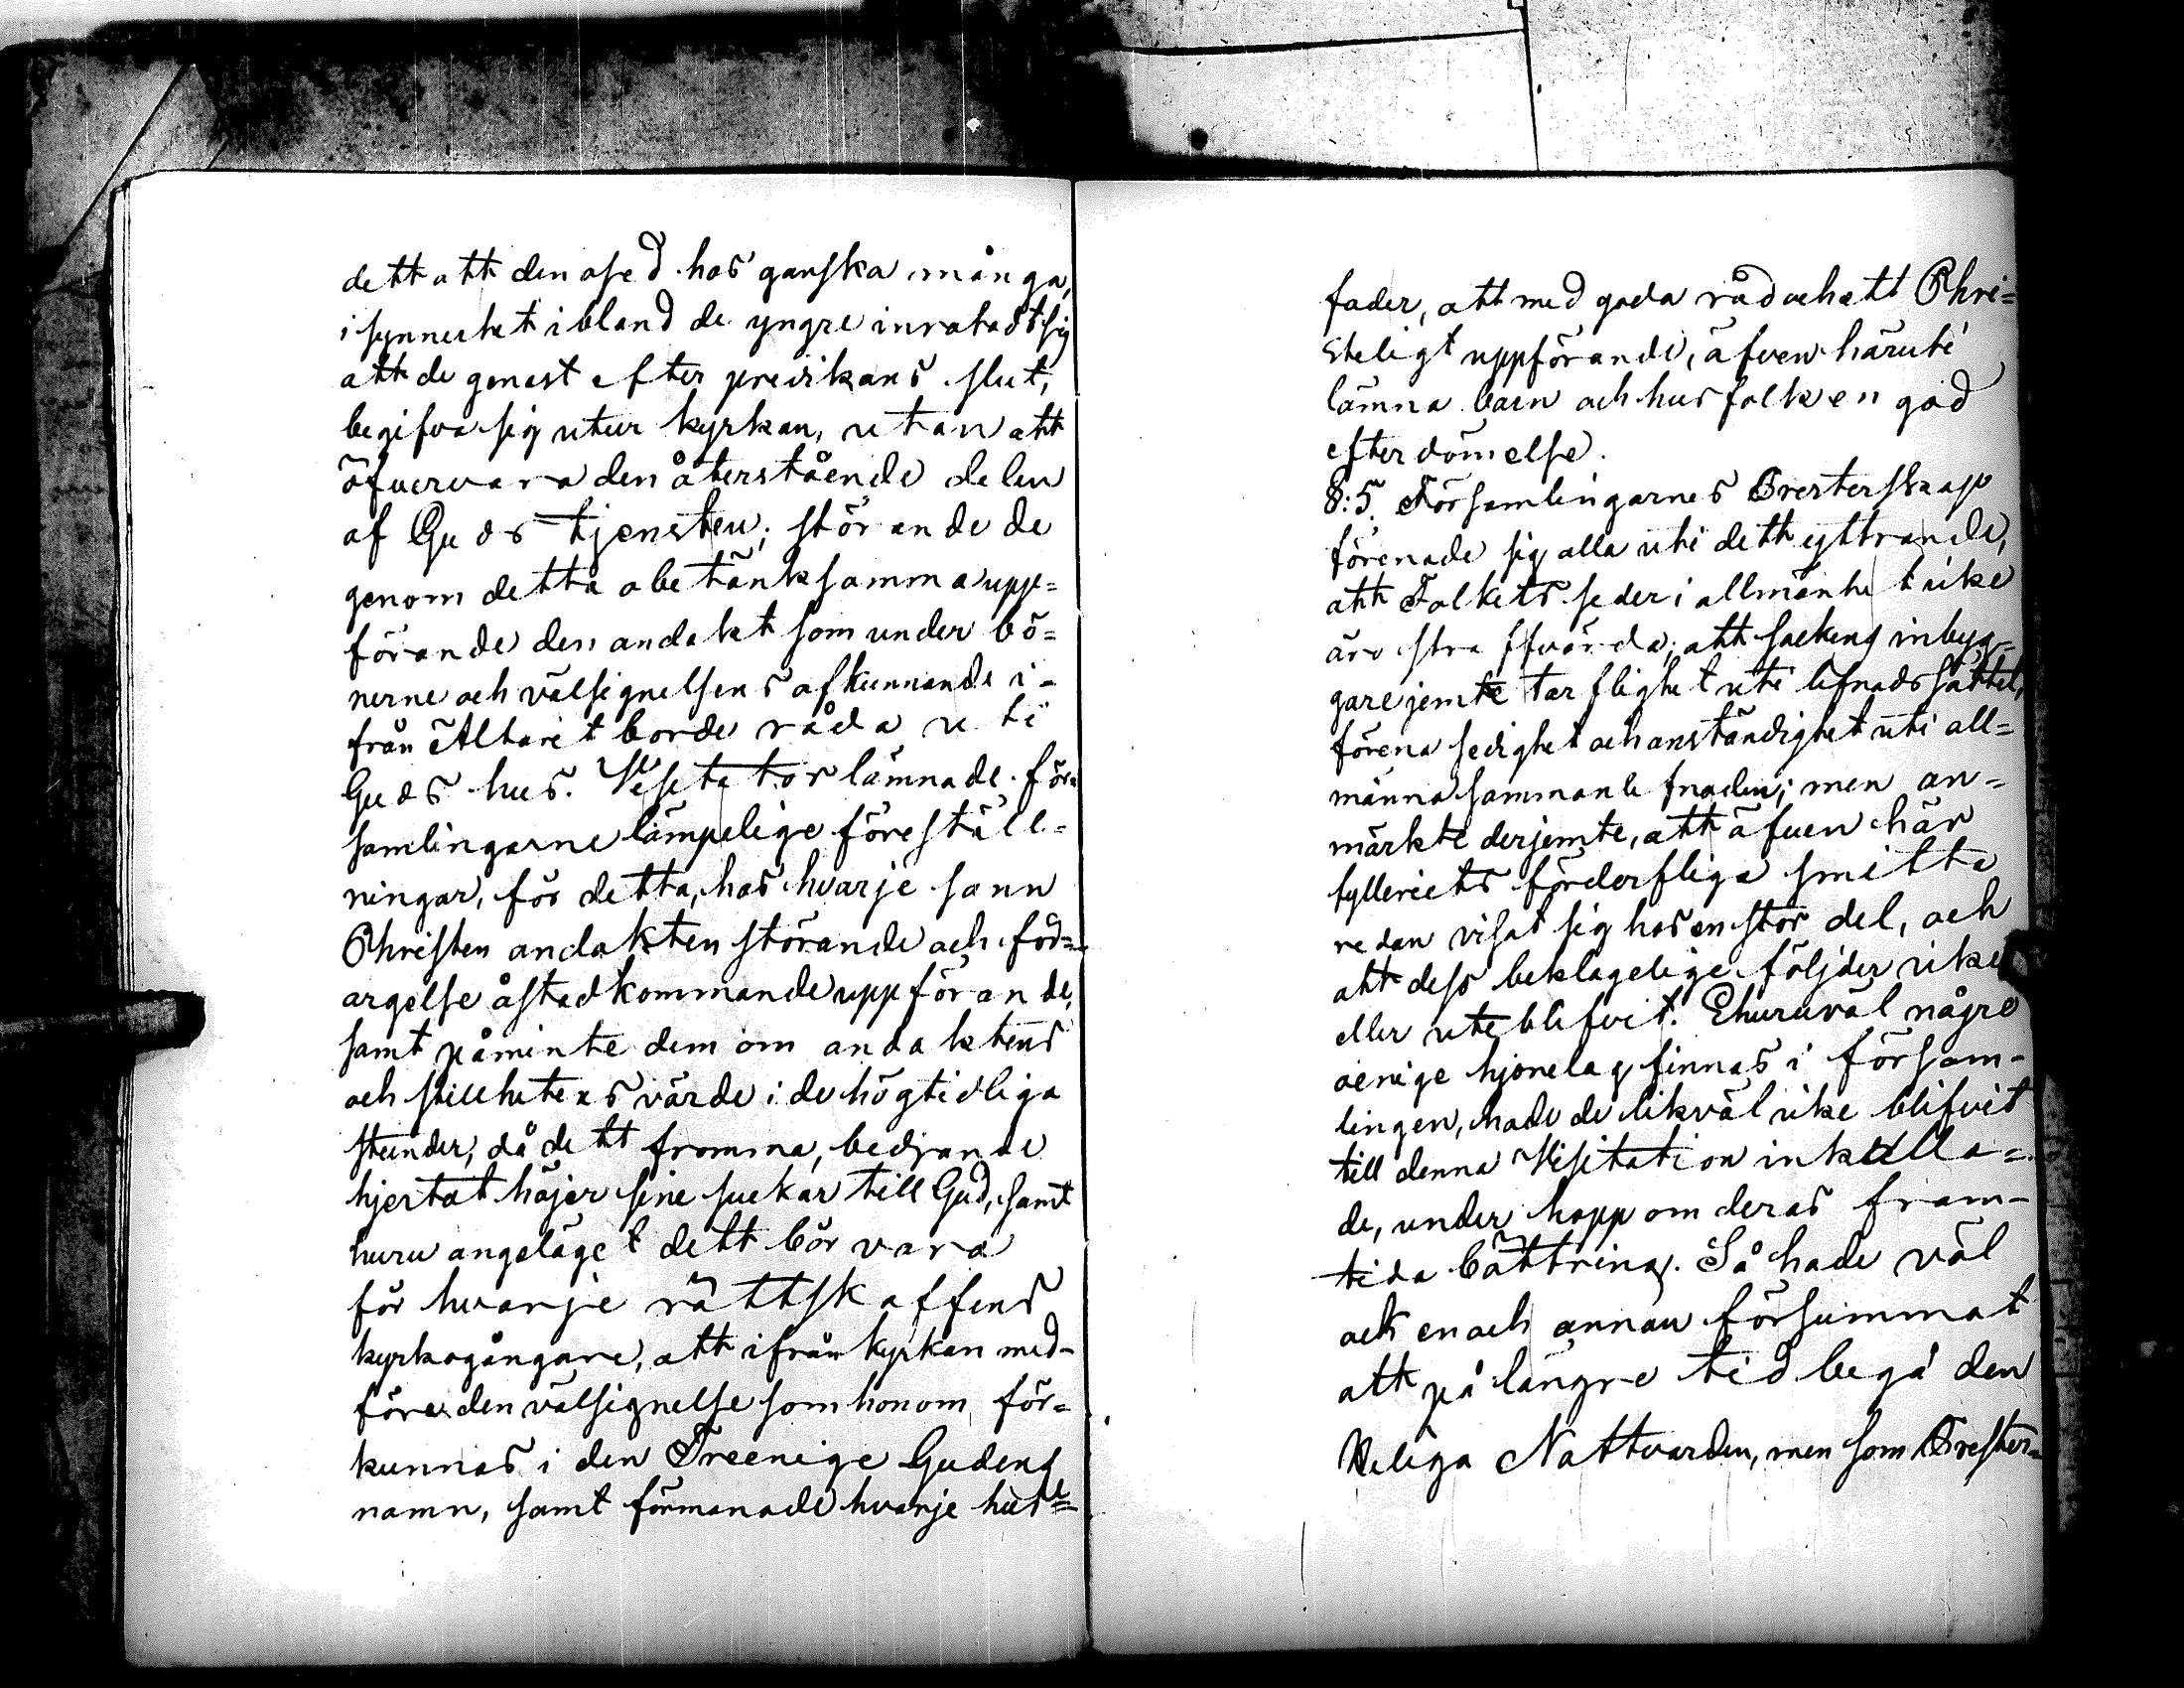 dett att den osed hos ganska många,
i synnerhet ibland de yngre inrotadt sig
att de genast efter predikans slut,
begifva sig utur kyrkan, utan att
öfvervara den återstående delen
af Guds tjensten; störande de
genom detta obetänksamma upp=
förande den andakt som under bö=
nerne och välsignelsens afkunnande i=
från Altaret borde råda uti
Guds hus. Visitator lämnade för=
samlingarne lämpelige föreställ=
ningar, för detta, hos hvarje sann
Christen andakten störande och för=
argelse åstadkommande uppförande,
samt påminte dem om andaktens
och stillhetens värde i de högtidliga
stunder, då dett fromma, bedjande
hjertat höjer sine suckar till Gud, samt
huru angeläget dett bör vara
för hvarje rättskaffens
kyrkogångare, att ifrån kyrkan med=
föra den välsignelse som honom för=
kunnas i den Treenige Gudens
namn, samt förmanade hvarje hus=
fader, att med goda råd och ett Chri=
steligt uppförande, äfven häruti
lämna barn och husfolk en god
efterdömelse.
8:5. Församlingarnes Presterskap
förenade sig alla uti dett yttrande,
att Folkets seder i allmänhet icke
äro straffvärda; att sockens inbyg=
gare jemte tarflighet uti lefnadssättet,
förena sedighet och anständighet uti all=
männa sammanlefnaden; men an=
märkte derjemte, att äfven här
fylleriets förderfliga smitta
redan visat sig hos en stor del, och
att dess beklagelige följder icke
eller uteblifvit. Ehuruväl någre
oenige hjonelag finnas i försam=
lingen, hade de likväl icke blifvit
till denna Visitation inkalla=
de, under hopp om deras fram=
tida bättring. Så hade väl
ock en och annan försummat
att på längre tid begå den
Heliga Nattvarden, men som Prester=